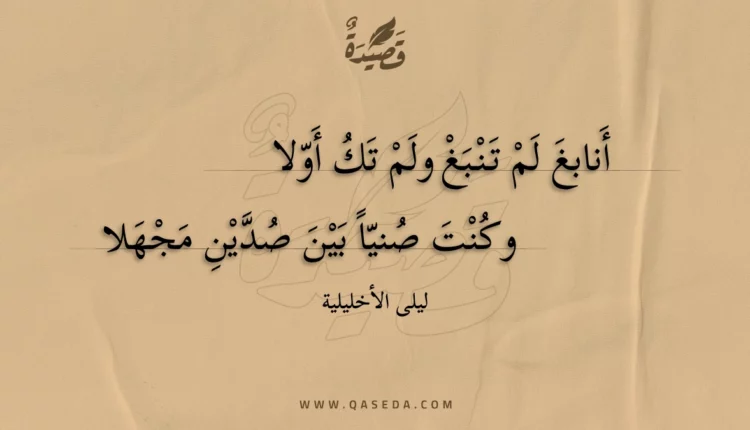 قَصِيدَةٌ
أَنابغَ لَمْ تَنْبَغْ ولَمْ تَكُ أَوّلا
وكُنْتَ صُنيّاً بَيْنَ صُدَّيْنِ مَجْهَلا
ليلى الأخليلية
WWW.QASEDA.COM